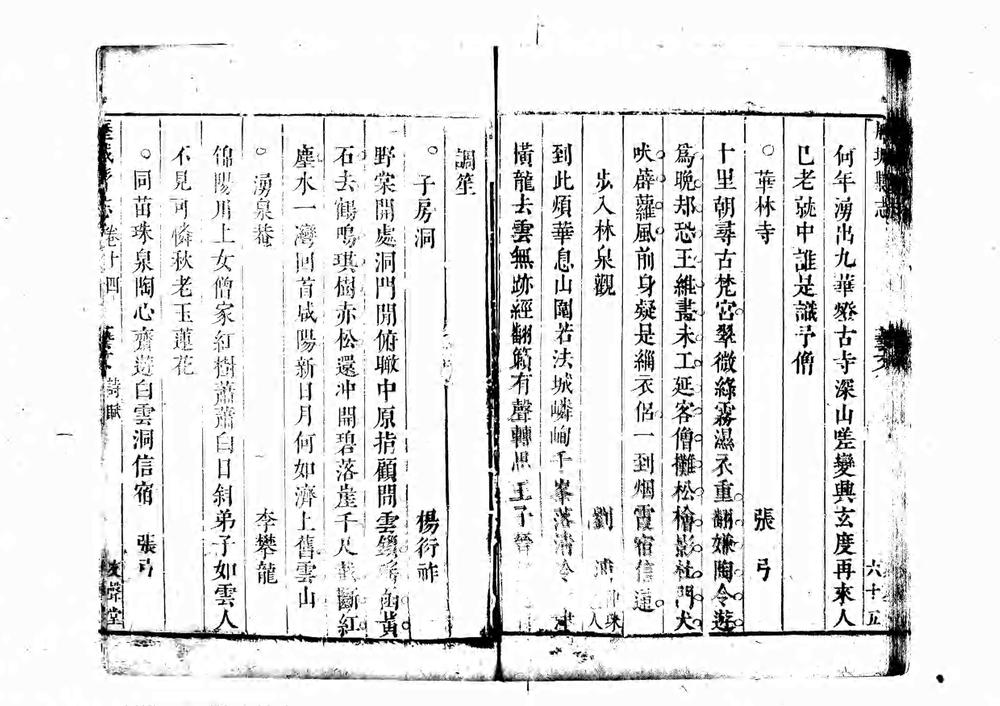 縣志
六十五
何年湧出九華發古寺深山嗟變興玄度再來人
巳老就中誰是識予僧
華林寺 張弓
十里朝尋古梵宮翠微綠霧濕衣重翻嫌陶令遊
爲晚却恐王維畫未工延客僧攤松檜影杜門犬
吠薜蘿風前身疑是緇衣侶一到烟霞宿信通
步入林泉觀 劉
到此煩華息山圍若法城嶙峋千峯落清
橫龍去雲無跡經翻 有聲轉思王子晉
調笙
子房洞 楊衍祚
野棠開處洞門開俯瞰中原指顧間雲鎖 函黃
石去鶴鳴琪樹赤松還冲開碧落崖千尺截斷紅
塵水一灣回首咸陽新日月何如濟上舊雲山
湧泉菴 李攀龍
錦陽川上女僧家紅樹蕭蕭白日斜弟子如雲人
不見可憐秋老玉蓮花
同苗珠泉陶心齋遊白雲洞信宿 張弓
歷城縣志 卷十四 藝文 詩賦 友聲堂